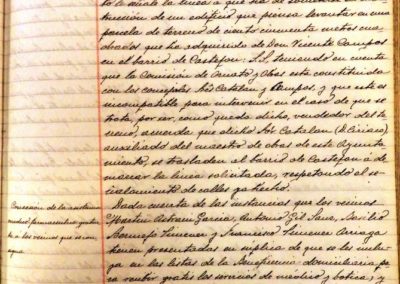 to señale la línea a que ha de someter la cons-
trucción de un edificio que piensa levantar en una
parcela de terreno de ciento cincuenta metros cua-
drados que ha adquirido de Don Vicente Campos
en el barrio de Castefon: S.S. tomando en cuenta
que la Comisión de Ornato y Obras esta constituida
con los concejales Sres Catalan y Campos y que este es
incompatible para intervenir en el caso de que se
trata, por ser, como queda dicho, vendedor del te-
rreno, acuerda que dicho Sor Catalan (D. Ciriaco)
auxiliado del maestro de obras de este Ayunta
miento, se trasladen al barrio de Castefon á de-
marcar la línea solicitada, respetando el se-
ñalamiento de calles ya hecho.
Dada cuenta de las instancias que los vecinos
Martin Astrain Garcia, Antonio Gil Sanz, Basilio
Jimenez y Francisco Jimenez
tienen presentadas en súplica de que se les inclu-
ya en las listas de la Beneficencia domiciliaria pa
ra recibir gratis los servicios de médico y botica; y
Concesion de la asistencia
médico farmaceutica gratui-
ta á los vecinos que se con-
signa